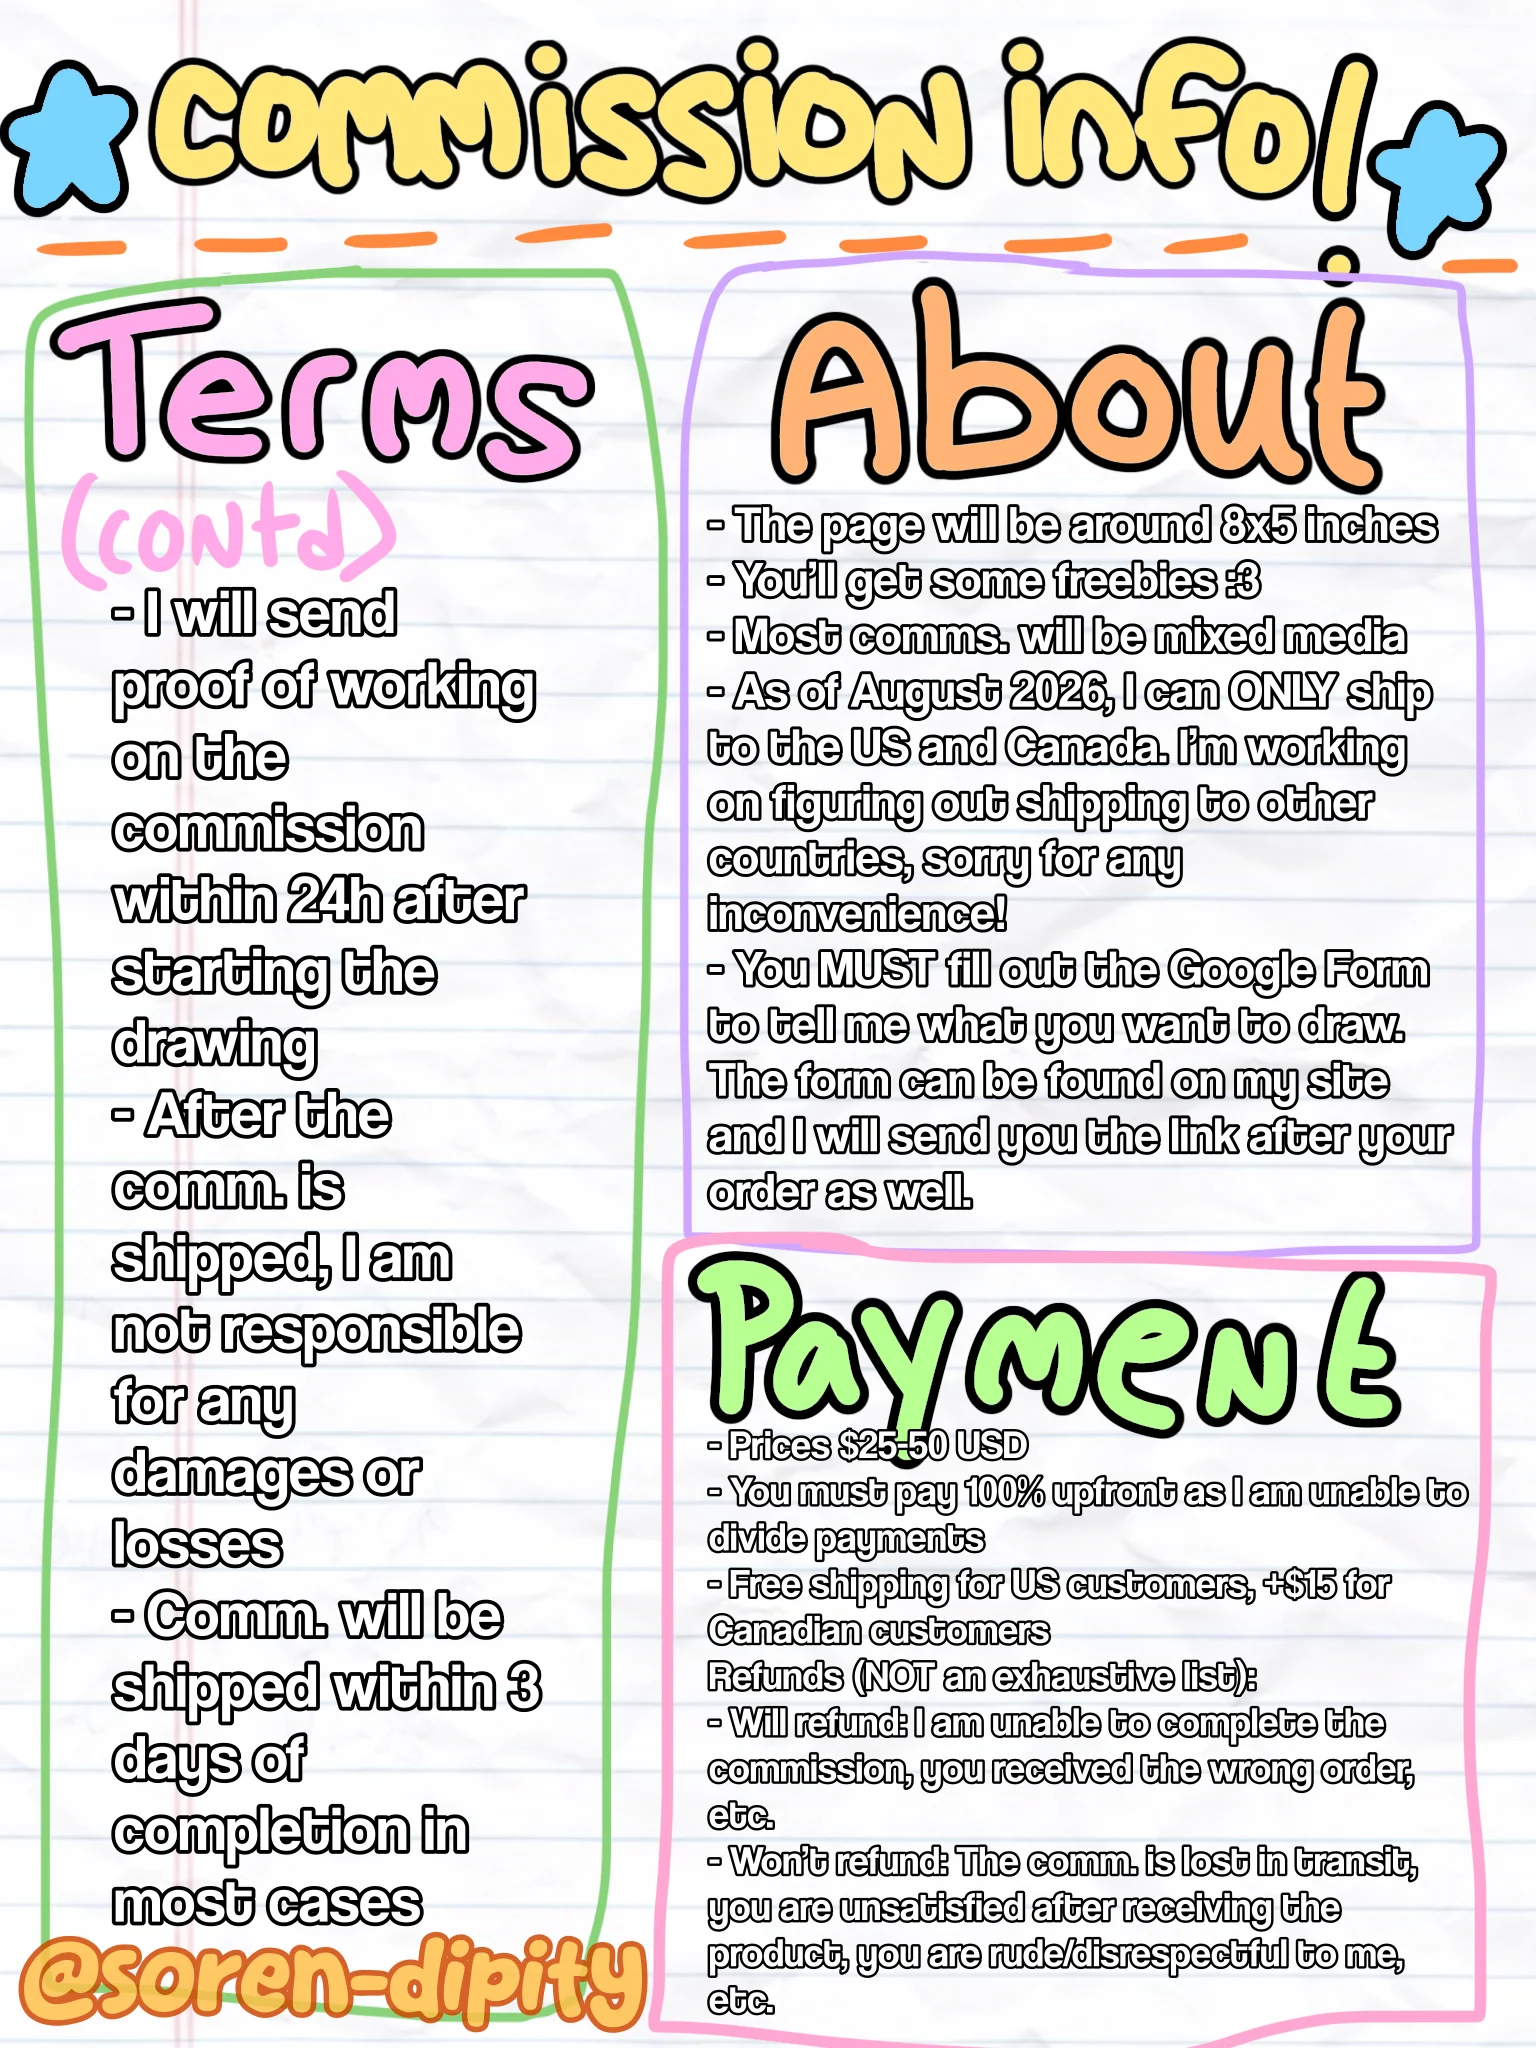 commission info!
Terms
(contd)
- I will send
proof of working
on the
commission
within 24h after
starting the
drawing
- After the
comm. is
shipped, I am
not responsible
for any
damages or
losses
- Comm. will be
shipped within 3
days of
completion in
most cases
@soren-dipity
About
- The page will be around 8x5 inches
- You'll get some freebies :3
- Most comms. will be mixed media
- As of August 2026, I can ONLY ship
to the US and Canada. I'm working
on figuring out shipping to other
countries, sorry for any
inconvenience!
- You MUST fill out the Google Form
to tell me what you want to draw.
The form can be found on my site
and I will send you the link after your
order as well.
Payment
- Prices $25-50 USD
- You must pay 100% upfront as I am unable to
divide payments
- Free shipping for US customers, +$15 for
Canadian customers
Refunds (NOT an exhaustive list):
- Will refund: I am unable to complete the
commission, you received the wrong order,
etc.
- Won't refund: The comm. is lost in transit,
you are unsatisfied after receiving the
product, you are rude/disrespectful to me,
etc.